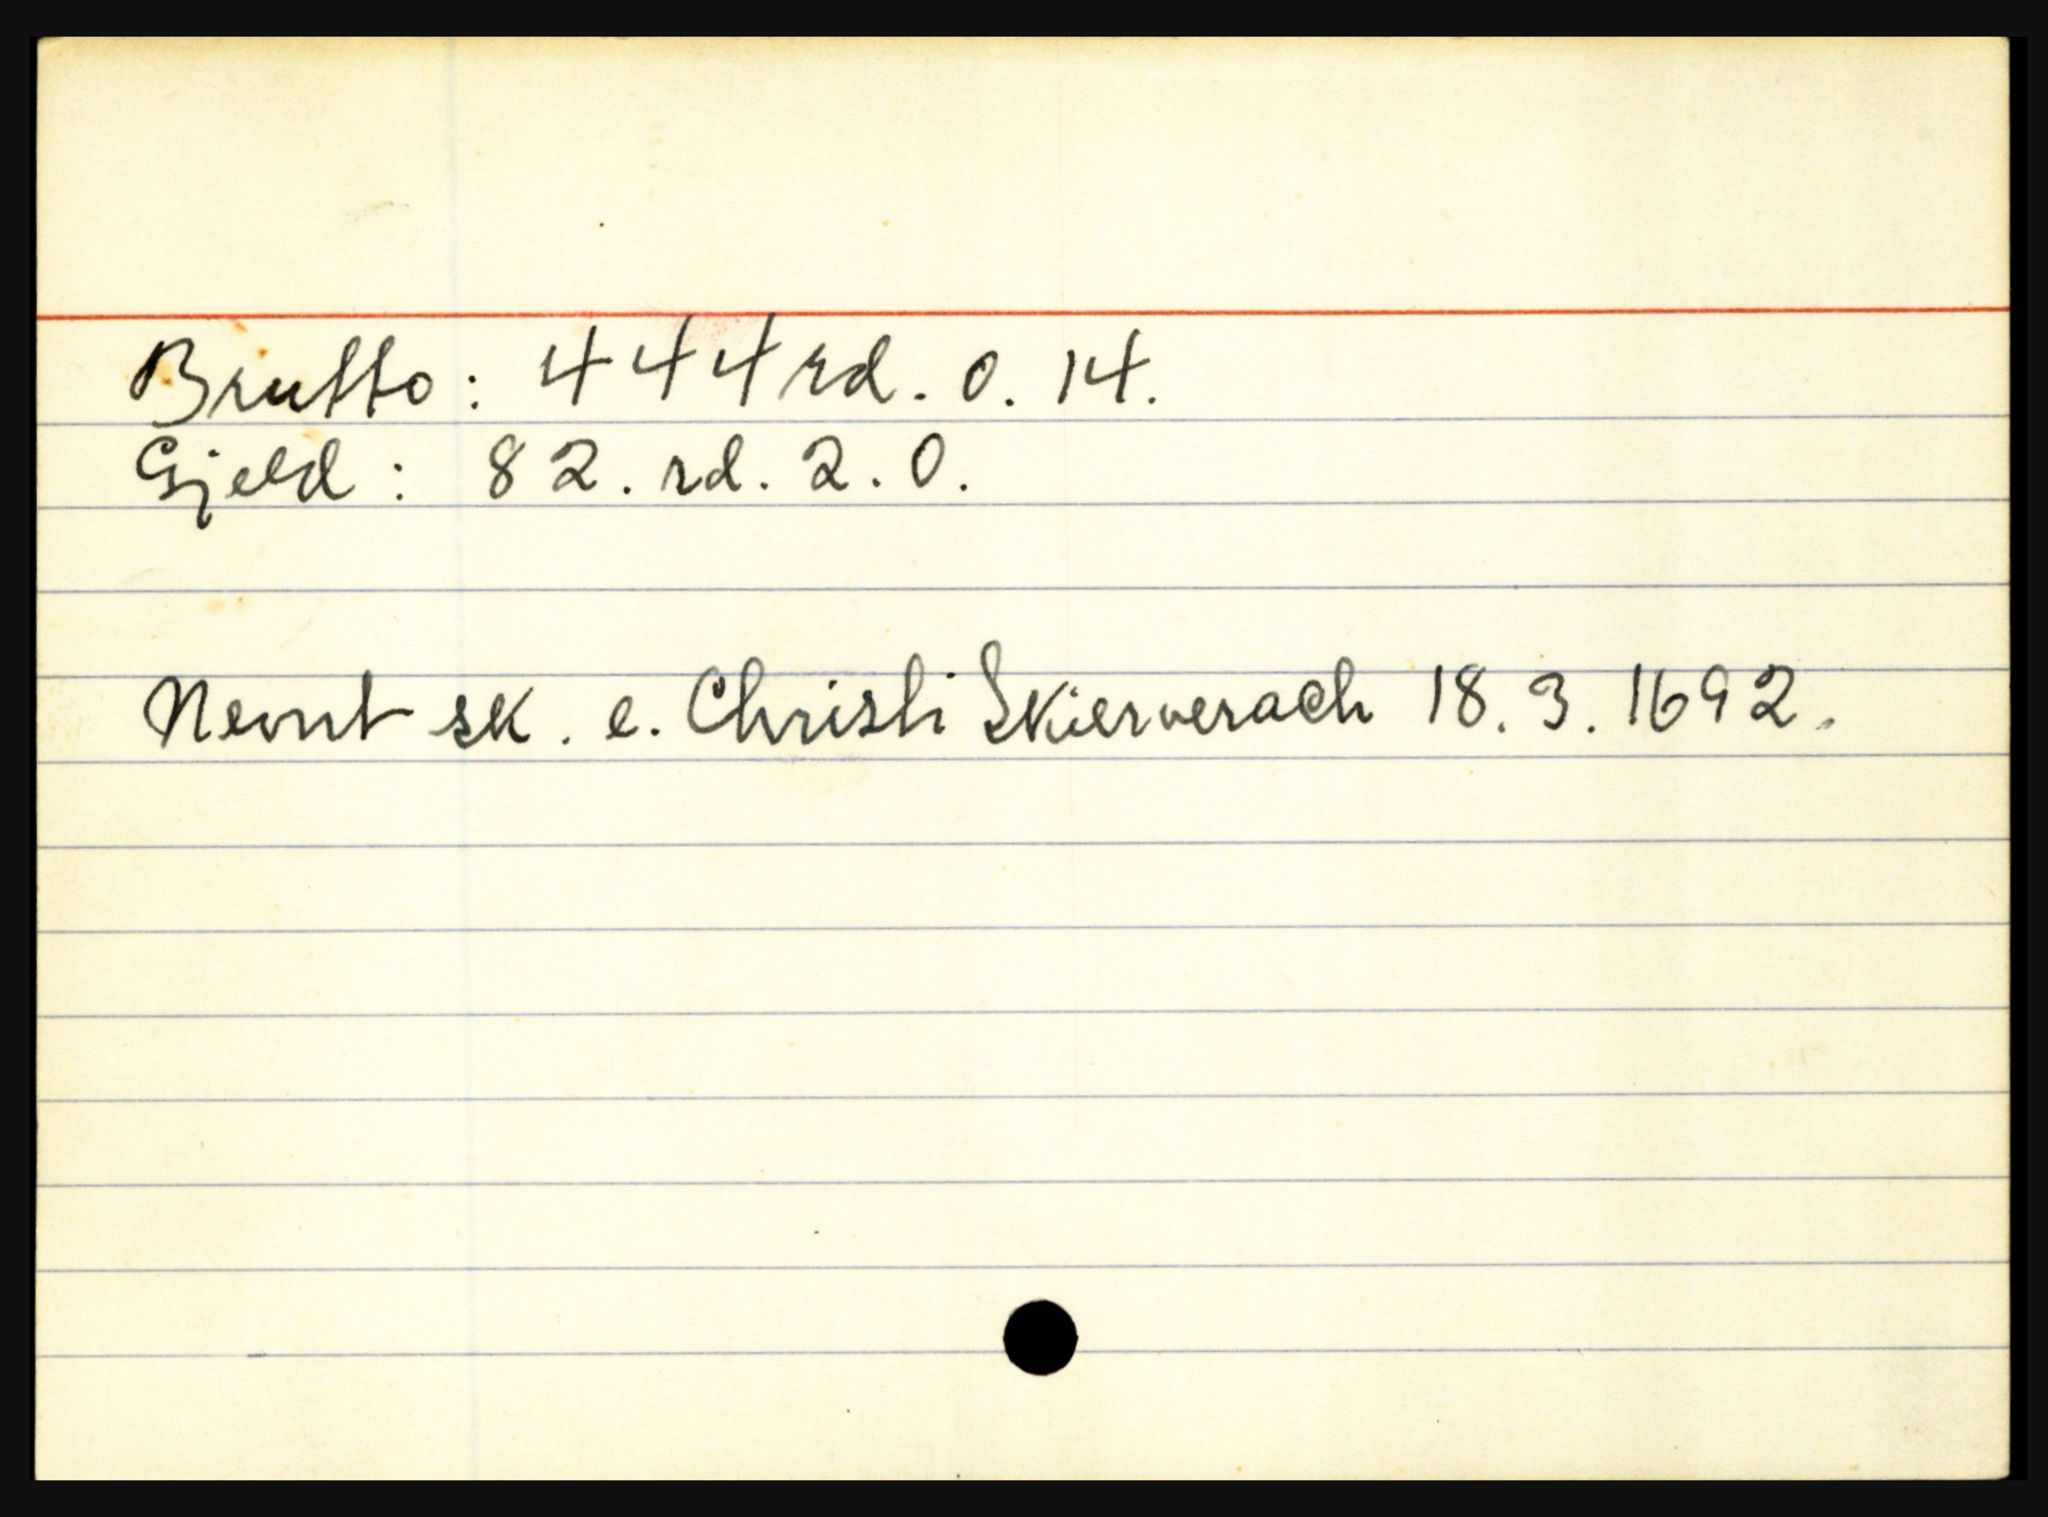 Brutto: 444 rd. 0. 14.
Gjeld: 82. rd. 2. 0.
Nevnt sk. e. Christi Skierverach 18. 3. 1692.